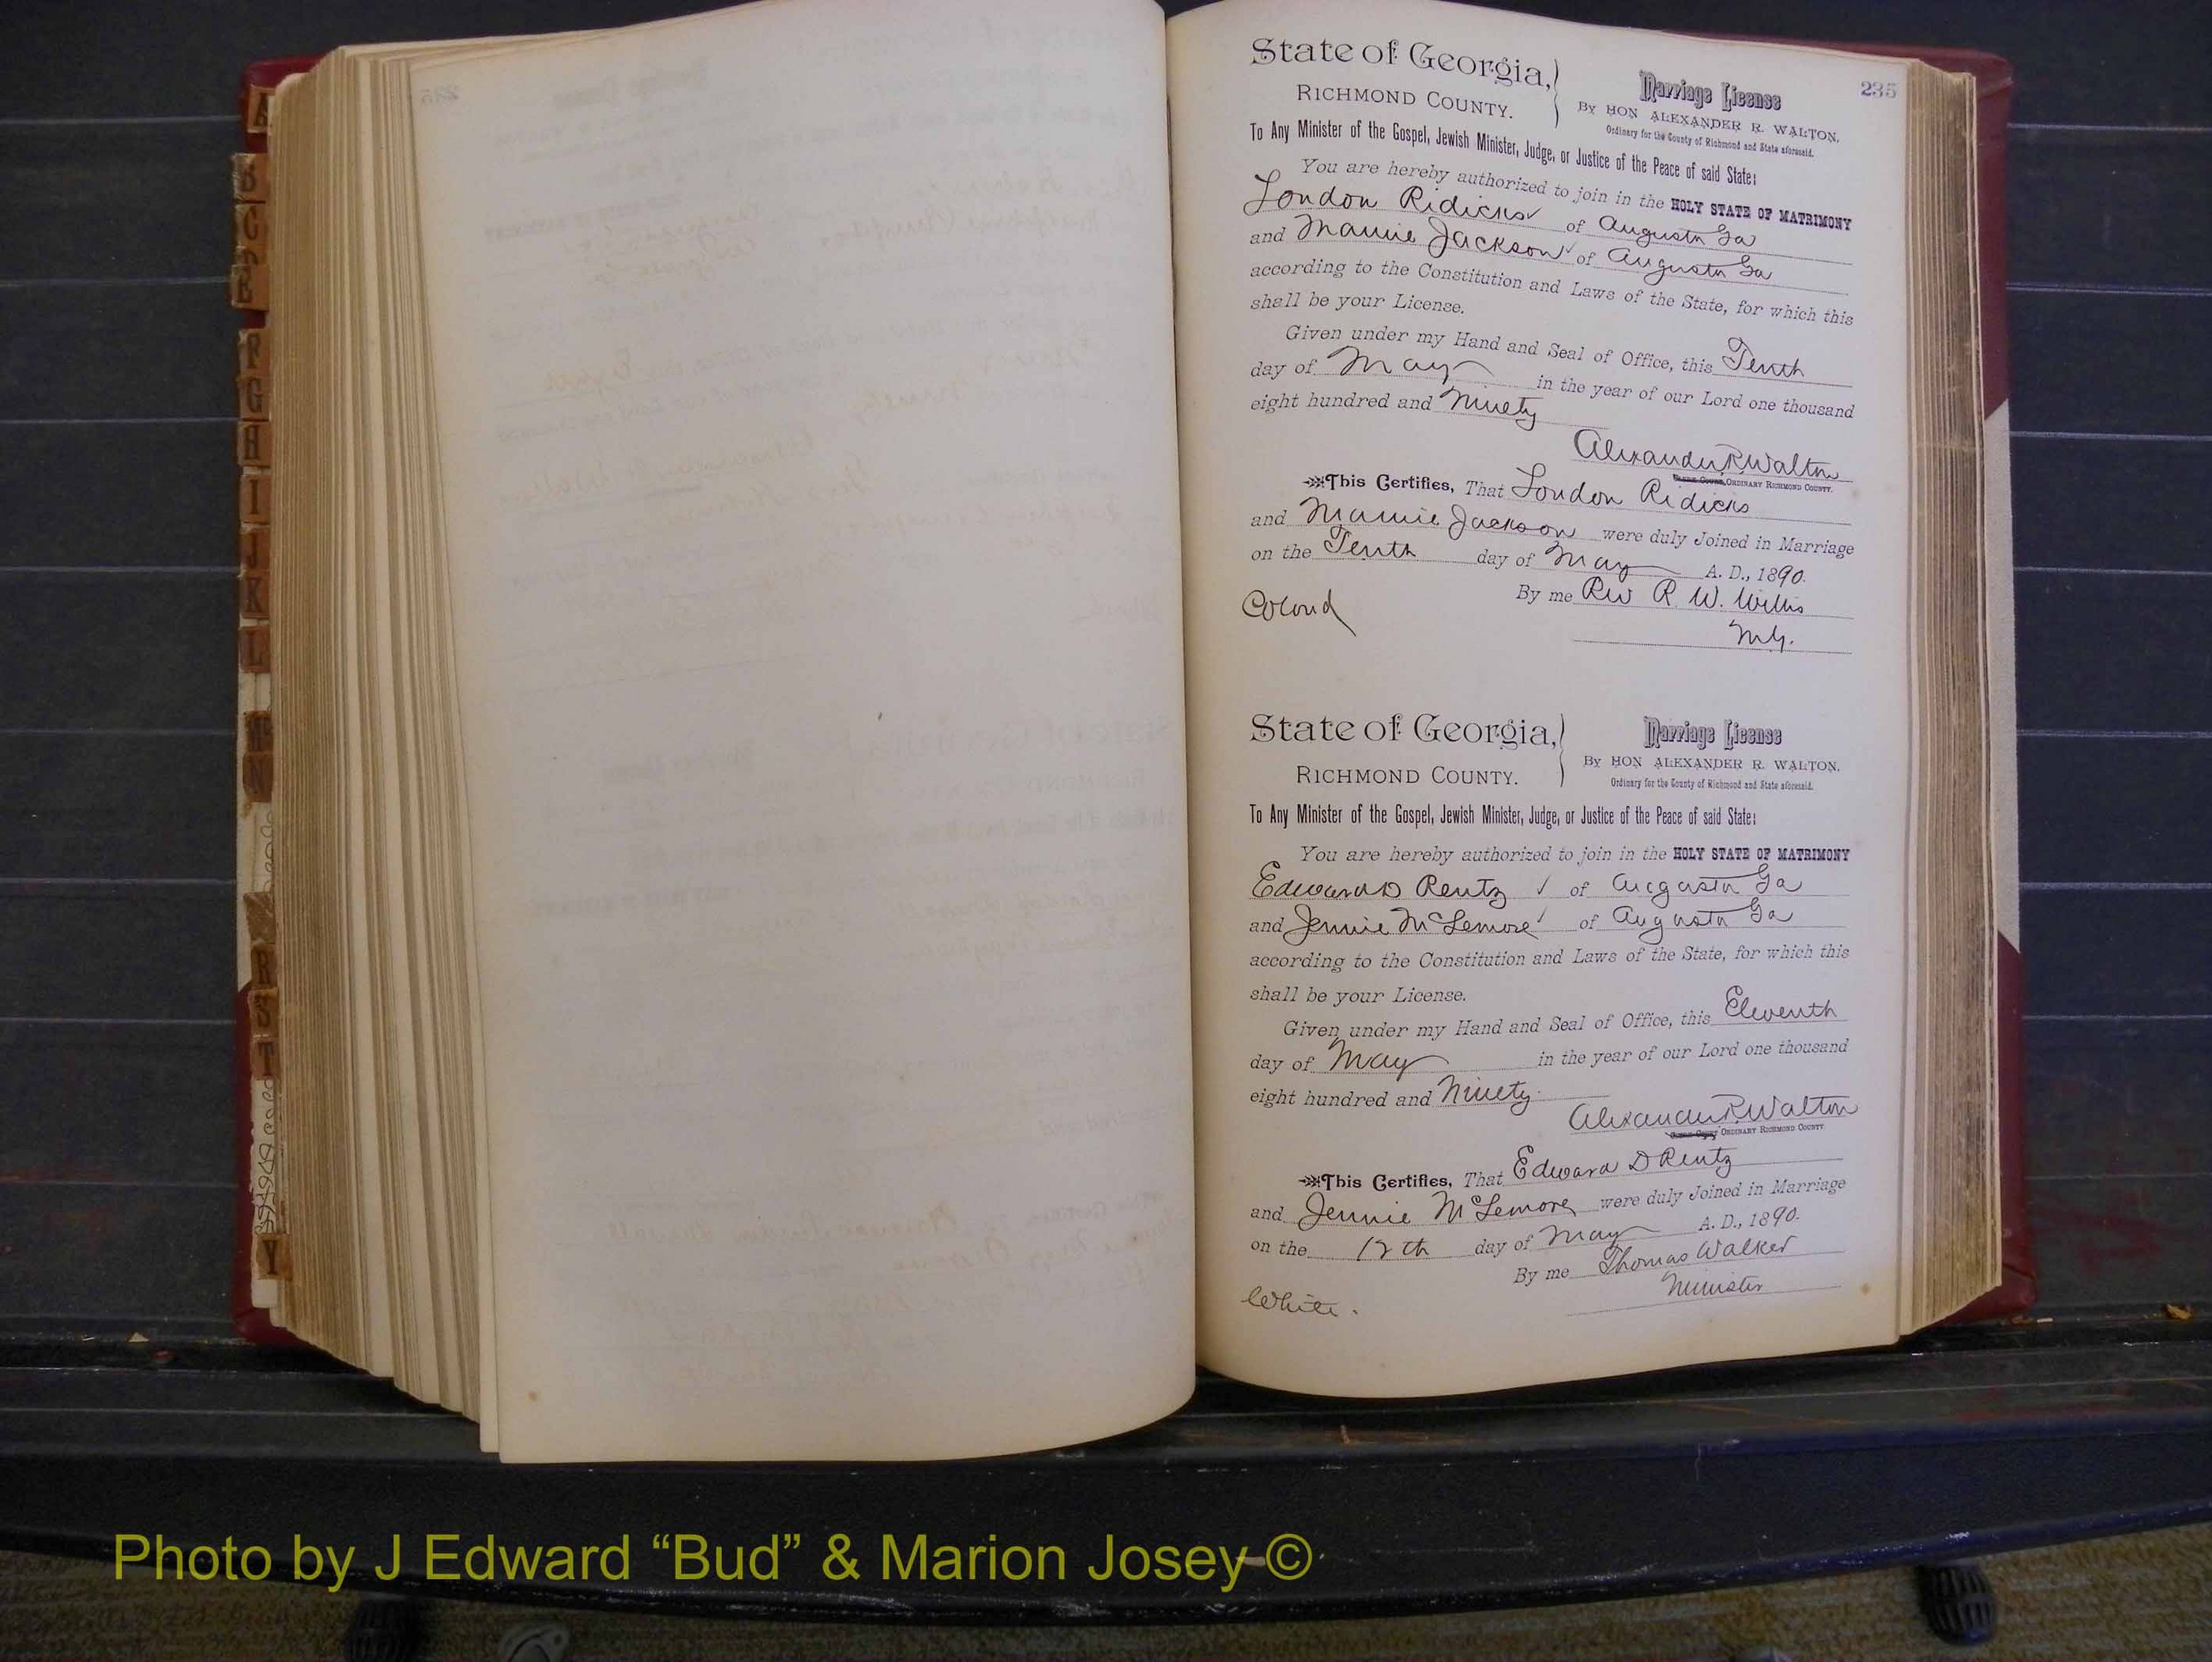 235
State of Georgia,
RICHMOND COUNTY.
Marriage License
By HON ALEXANDER R. WALTON,
Ordinary for the County of Richmond and State aforesaid.
To Any Minister of the Gospel, Jewish Minister, Judge, or Justice of the Peace of said State:
You are hereby authorized to join in the HOLY STATE OF MATRIMONY
London Ridicks of Augusta Ga
and Mamie Jackson of Augusta Ga
according to the Constitution and Laws of the State, for which this
shall be your License.
Given under my Hand and Seal of Office, this Tenth
day of May in the year of our Lord one thousand
eight hundred and Ninety
Alexander R Walton
ORDINARY RICHMOND COUNTY.
This Certifies, That London Ridicks
and Mamie Jackson were duly Joined in Marriage
on the Tenth day of May A. D., 1890.
By me Rev R. W. Willis
M.G.
Colored
State of Georgia,
RICHMOND COUNTY.
Marriage License
By HON ALEXANDER R. WALTON,
Ordinary for the County of Richmond and State aforesaid.
To Any Minister of the Gospel, Jewish Minister, Judge, or Justice of the Peace of said State:
You are hereby authorized to join in the HOLY STATE OF MATRIMONY
Edward D Rentz of Augusta Ga
and Jennie McLemore of Augusta Ga
according to the Constitution and Laws of the State, for which this
shall be your License.
Given under my Hand and Seal of Office, this Eleventh
day of May in the year of our Lord one thousand
eight hundred and Ninety
Alexander R Walton
ORDINARY RICHMOND COUNTY
This Certifies, That Edward D Rentz
and Jennie McLemore were duly Joined in Marriage
on the 12th day of May A. D., 1890.
By me Thomas Walker
Minister
White.
A
B
C
F
G
H
I
J
K
L
Mc
N
R
S
T
Y
Photo by J Edward “Bud” & Marion Josey ©